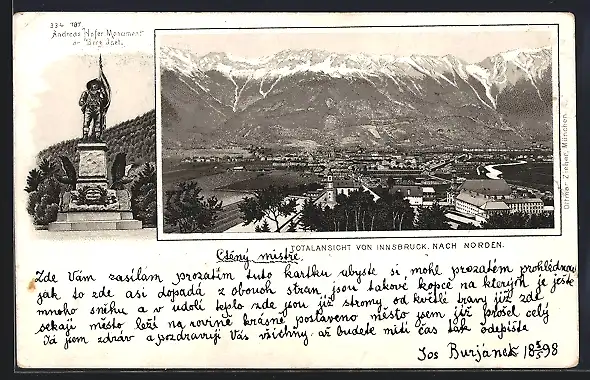 334 707.
Andreas Hofer Monument
a. Berg Isel.
TOTALANSICHT VON INNSBRUCK, NACH NORDEN.
Ottmar Zieher, München.
Ctěný mistře
Zde Vám zasílám prozatim tuto kartku abyste si mohl prozatém prohlédnou
jak to zde asi dopadá z obouch stran jsou takové kopce na kterých je ještě
mnoho sněhu a v udolí teplo zde jsou již stromy odkvětlé travy již zde
sekají město leží na rovině krásně postaveno město jsem již prošel celý
Já jsem zdráv a pozdravuji Vás všichny. až budete miti čas tak odepište
Jos Burjánek 18 5/5 98